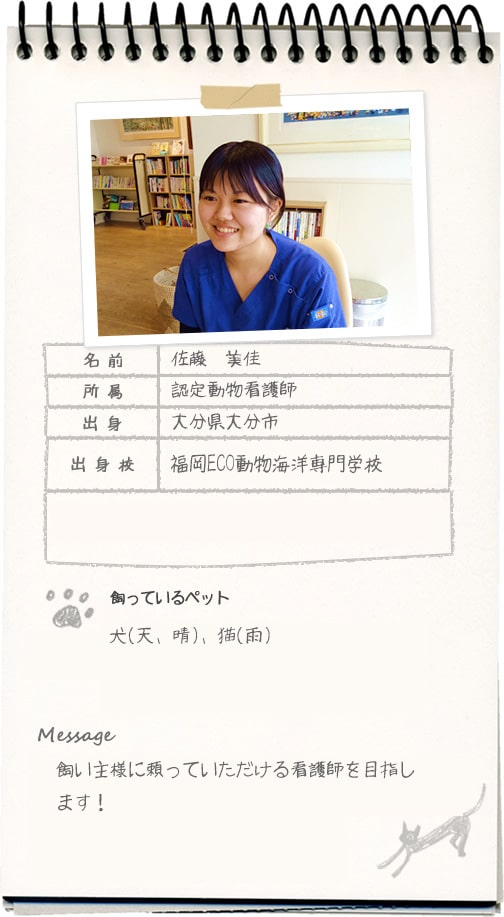 名前 佐藤 美佳
所属 認定動物看護師
出身 大分県大分市
出身校 福岡ECO動物海洋専門学校
飼っているペット
犬(天、晴)、猫(雨)
Message
飼い主様に頼っていただける看護師を目指し
ます!